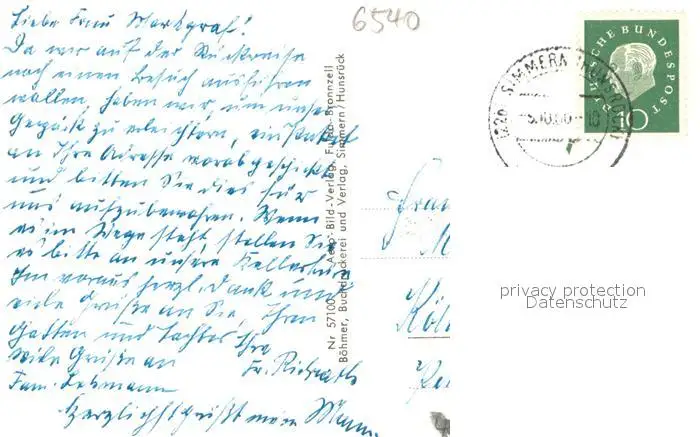 Liebe Frau Markgraf!
Da wir auf der Rückreise
noch einen Besuch ausführen
wollen, haben wir, um unser
Gepäck zu erleichtern, ein Paket
an Ihre Adresse vorab geschickt
und bitten Sie dies für
uns aufzubewahren. Wenn
es im Wege steht, stellen Sie
es bitte an unsere Kellertür
Im voraus herzl. Dank und
viele Grüße an Sie, Ihren
Gatten und Tochter Ihre
Viele Grüße an
Fam. Lehmann
Herzlichst grüßt mein Mann
6540
Nr 57100 Aero-Bild-Verlag, Fulda-Bronnzell
Böhmer, Buchdruckerei und Verlag, Simmern/Hunsrück
SIMMERN (HUNSRÜCK)
DEUTSCHE BUNDESPOST
10
Frau
M
Köl
privacy protection
Datenschutz